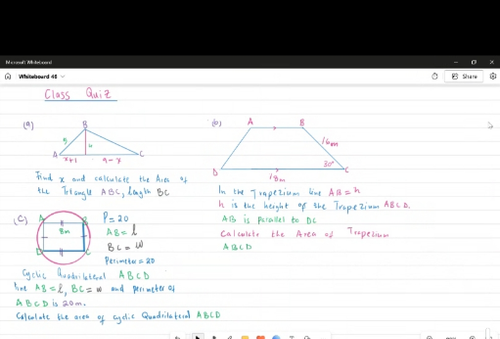 Microsoft Whiteboard
Whiteboard 48
Share
Class Quiz
(a)
B
5
4
A
C
x+1
9-x
Find x and calculate the Area of
the Triangle ABC, length BC
(b)
A
B
16m
30°
D
C
18m
In the Trapezium line AB = h
h is the height of the Trapezium ABCD.
AB is parallel to DC
Calculate the Area of Trapezium
ABCD
(C)
A
B
8m
D
C
P=20
AB = l
BC = w
Perimeter=20
Cyclic Quadrilateral ABCD
line AB = l, BC = w and perimeter of
ABCD is 20m.
Calculate the area of cyclic Quadrilateral ABCD